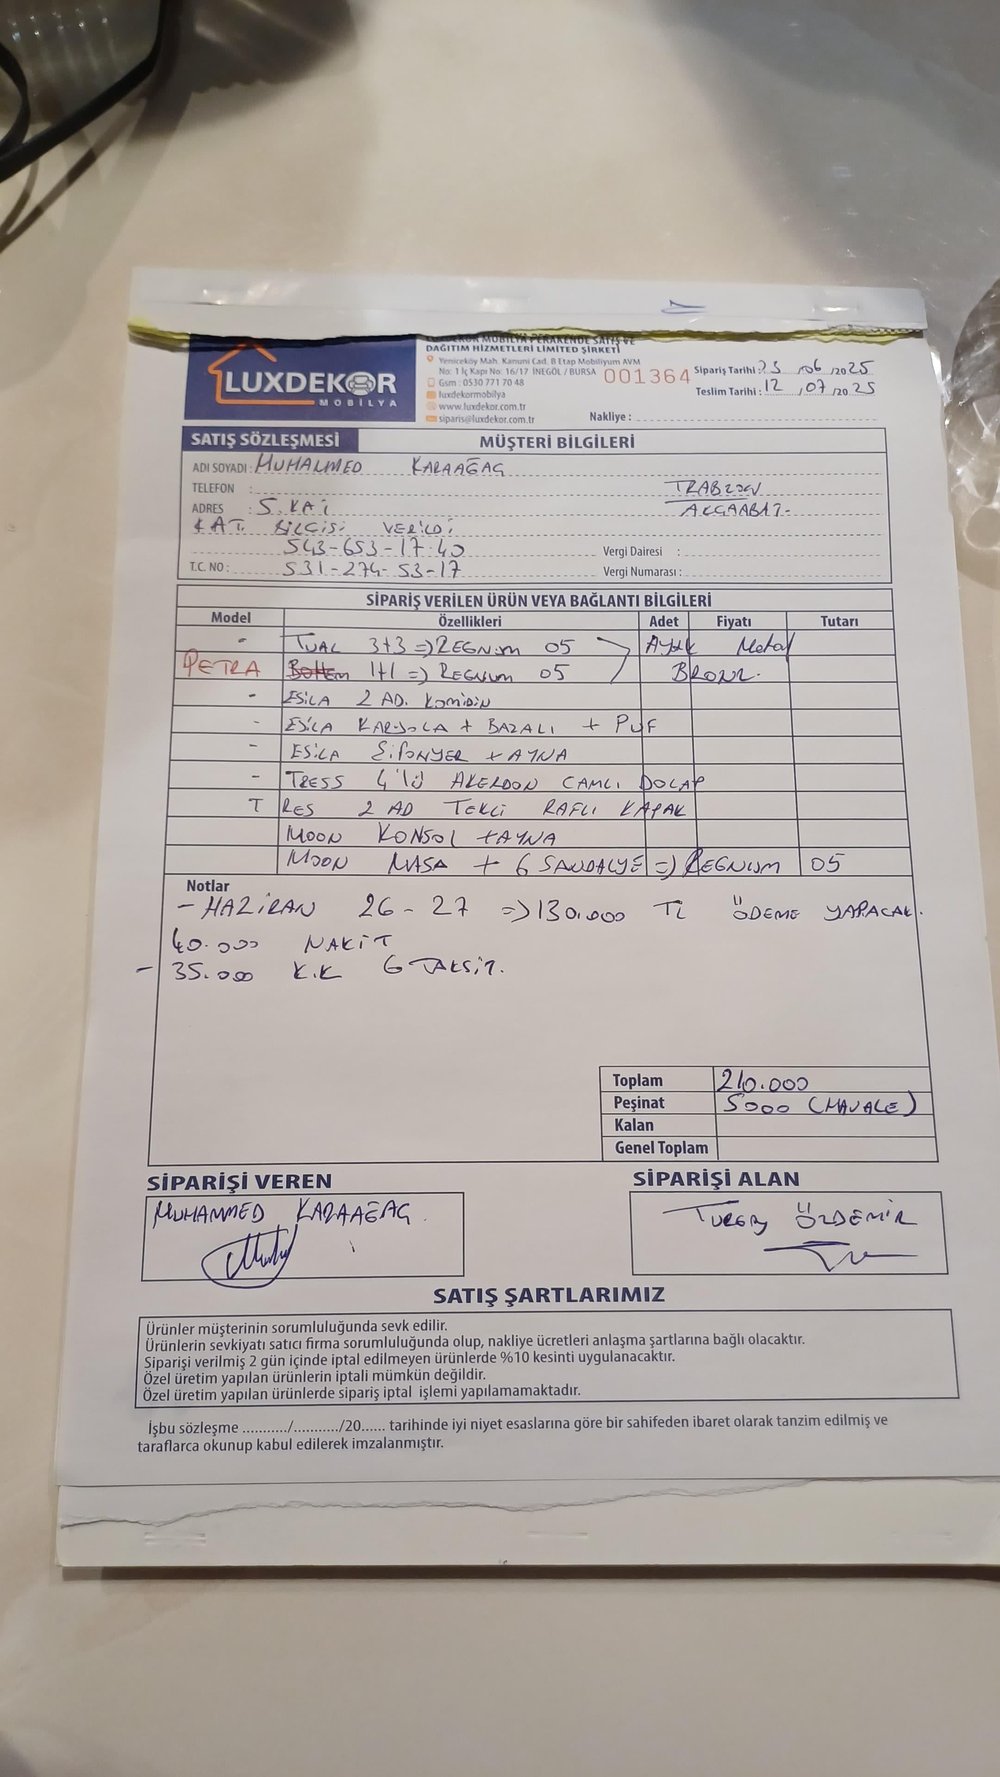 LUXDEKOR MOBİLYA PERAKENDE SATIŞ VE
DAĞITIM HİZMETLERİ LİMİTED ŞİRKETİ
Yeniceköy Mah. Kanuni Cad. B Etap Mobiliyum AVM
No: 1 İç Kapı No: 16/17 İNEGÖL / BURSA
Gsm : 0530 771 70 48
luxdekormobilya
www.luxdekor.com.tr
siparis@luxdekor.com.tr
001364
LUXDEKOR
MOBİLYA
Sipariş Tarihi : 23 /06 /2025
Teslim Tarihi : 12 /07 /2025
Nakliye :
SATIŞ SÖZLEŞMESİ
MÜŞTERİ BİLGİLERİ
ADI SOYADI : MUHAMMED KARAAĞAÇ
TELEFON : TRABZON
ADRES : 5. KAT AKÇAABAT
KAT BİLGİSİ VERİLDİ
543-653-17-40 Vergi Dairesi :
T.C. NO : 531-274-53-17 Vergi Numarası :
SİPARİŞ VERİLEN ÜRÜN VEYA BAĞLANTI BİLGİLERİ
Model Özellikleri Adet Fiyatı Tutarı
- TUAL 3+3 => REGNUM 05 AYAK Metal
PETRA 1+1 => REGNUM 05 BRONZ.
- ESİLA 2 AD. KOMİDİN
- ESİLA KARYOLA + BAZALI + PUF
- ESİLA ŞİFONYER + AYNA
- TRESS 4'lü AKERDON CAMLI DOLAP
T RES 2 AD TEKLİ RAFLI KAPAK
MOON KONSOL + AYNA
MOON MASA + 6 SANDALYE => REGNUM 05
Notlar
- HAZİRAN 26 - 27 => 130.000 TL ÖDEME YAPACAK.
40.000 NAKİT
- 35.000 K.K 6 TAKSİT.
Toplam 210.000
Peşinat 5000 (HAVALE)
Kalan
Genel Toplam
SİPARİŞİ VEREN SİPARİŞİ ALAN
MUHAMMED KARAAĞAÇ ÖZDEMİR
SATIŞ ŞARTLARIMIZ
Ürünler müşterinin sorumluluğunda sevk edilir.
Ürünlerin sevkiyatı satıcı firma sorumluluğunda olup, nakliye ücretleri anlaşma şartlarına bağlı olacaktır.
Siparişi verilmiş 2 gün içinde iptal edilmeyen ürünlerde %10 kesinti uygulanacaktır.
Özel üretim yapılan ürünlerin iptali mümkün değildir.
Özel üretim yapılan ürünlerde sipariş iptal işlemi yapılamamaktadır.
İşbu sözleşme .........../.........../20...... tarihinde iyi niyet esaslarına göre bir sahifeden ibaret olarak tanzim edilmiş ve
taraflarca okunup kabul edilerek imzalanmıştır.